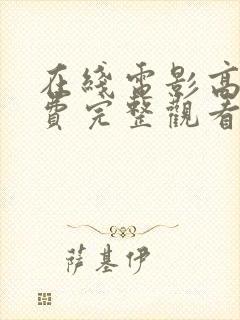 在綫電影高
費完整觀看
萨基伊